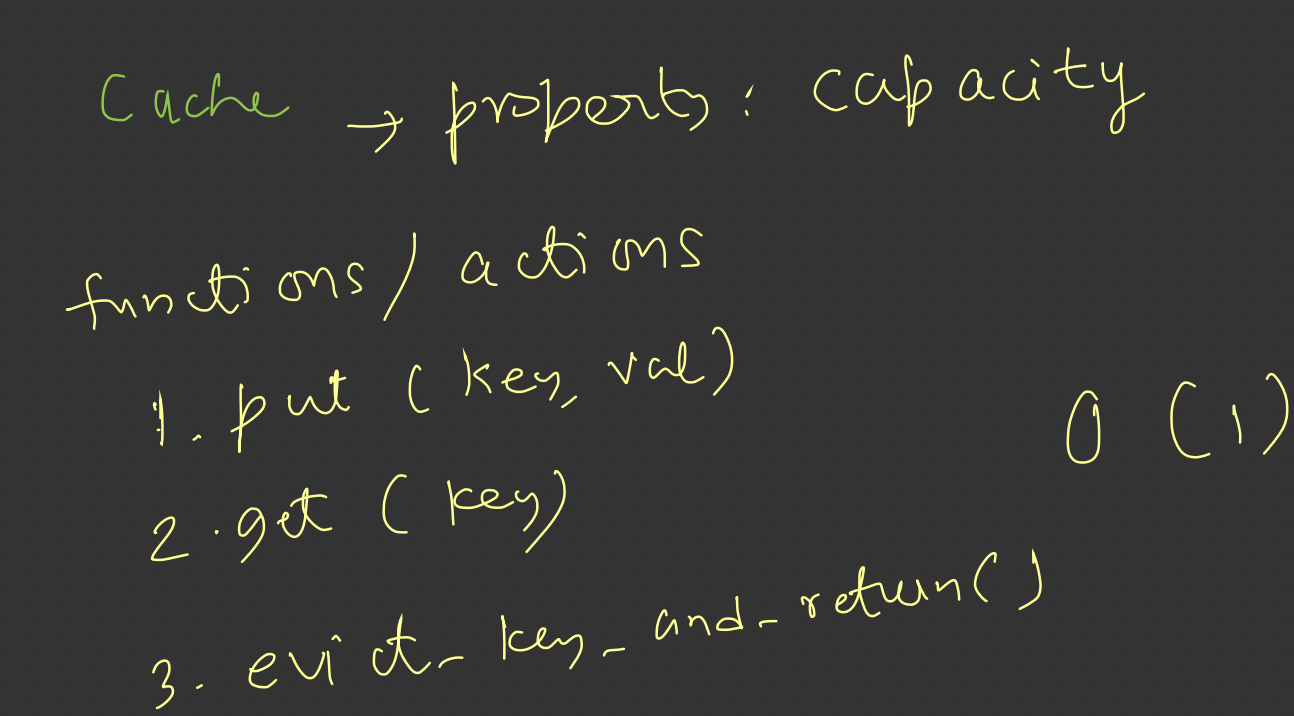 Cache → property: capacity
functions/ actions
1. put (key, val)
O (1)
2. get (key)
3. evict_key_and_return()